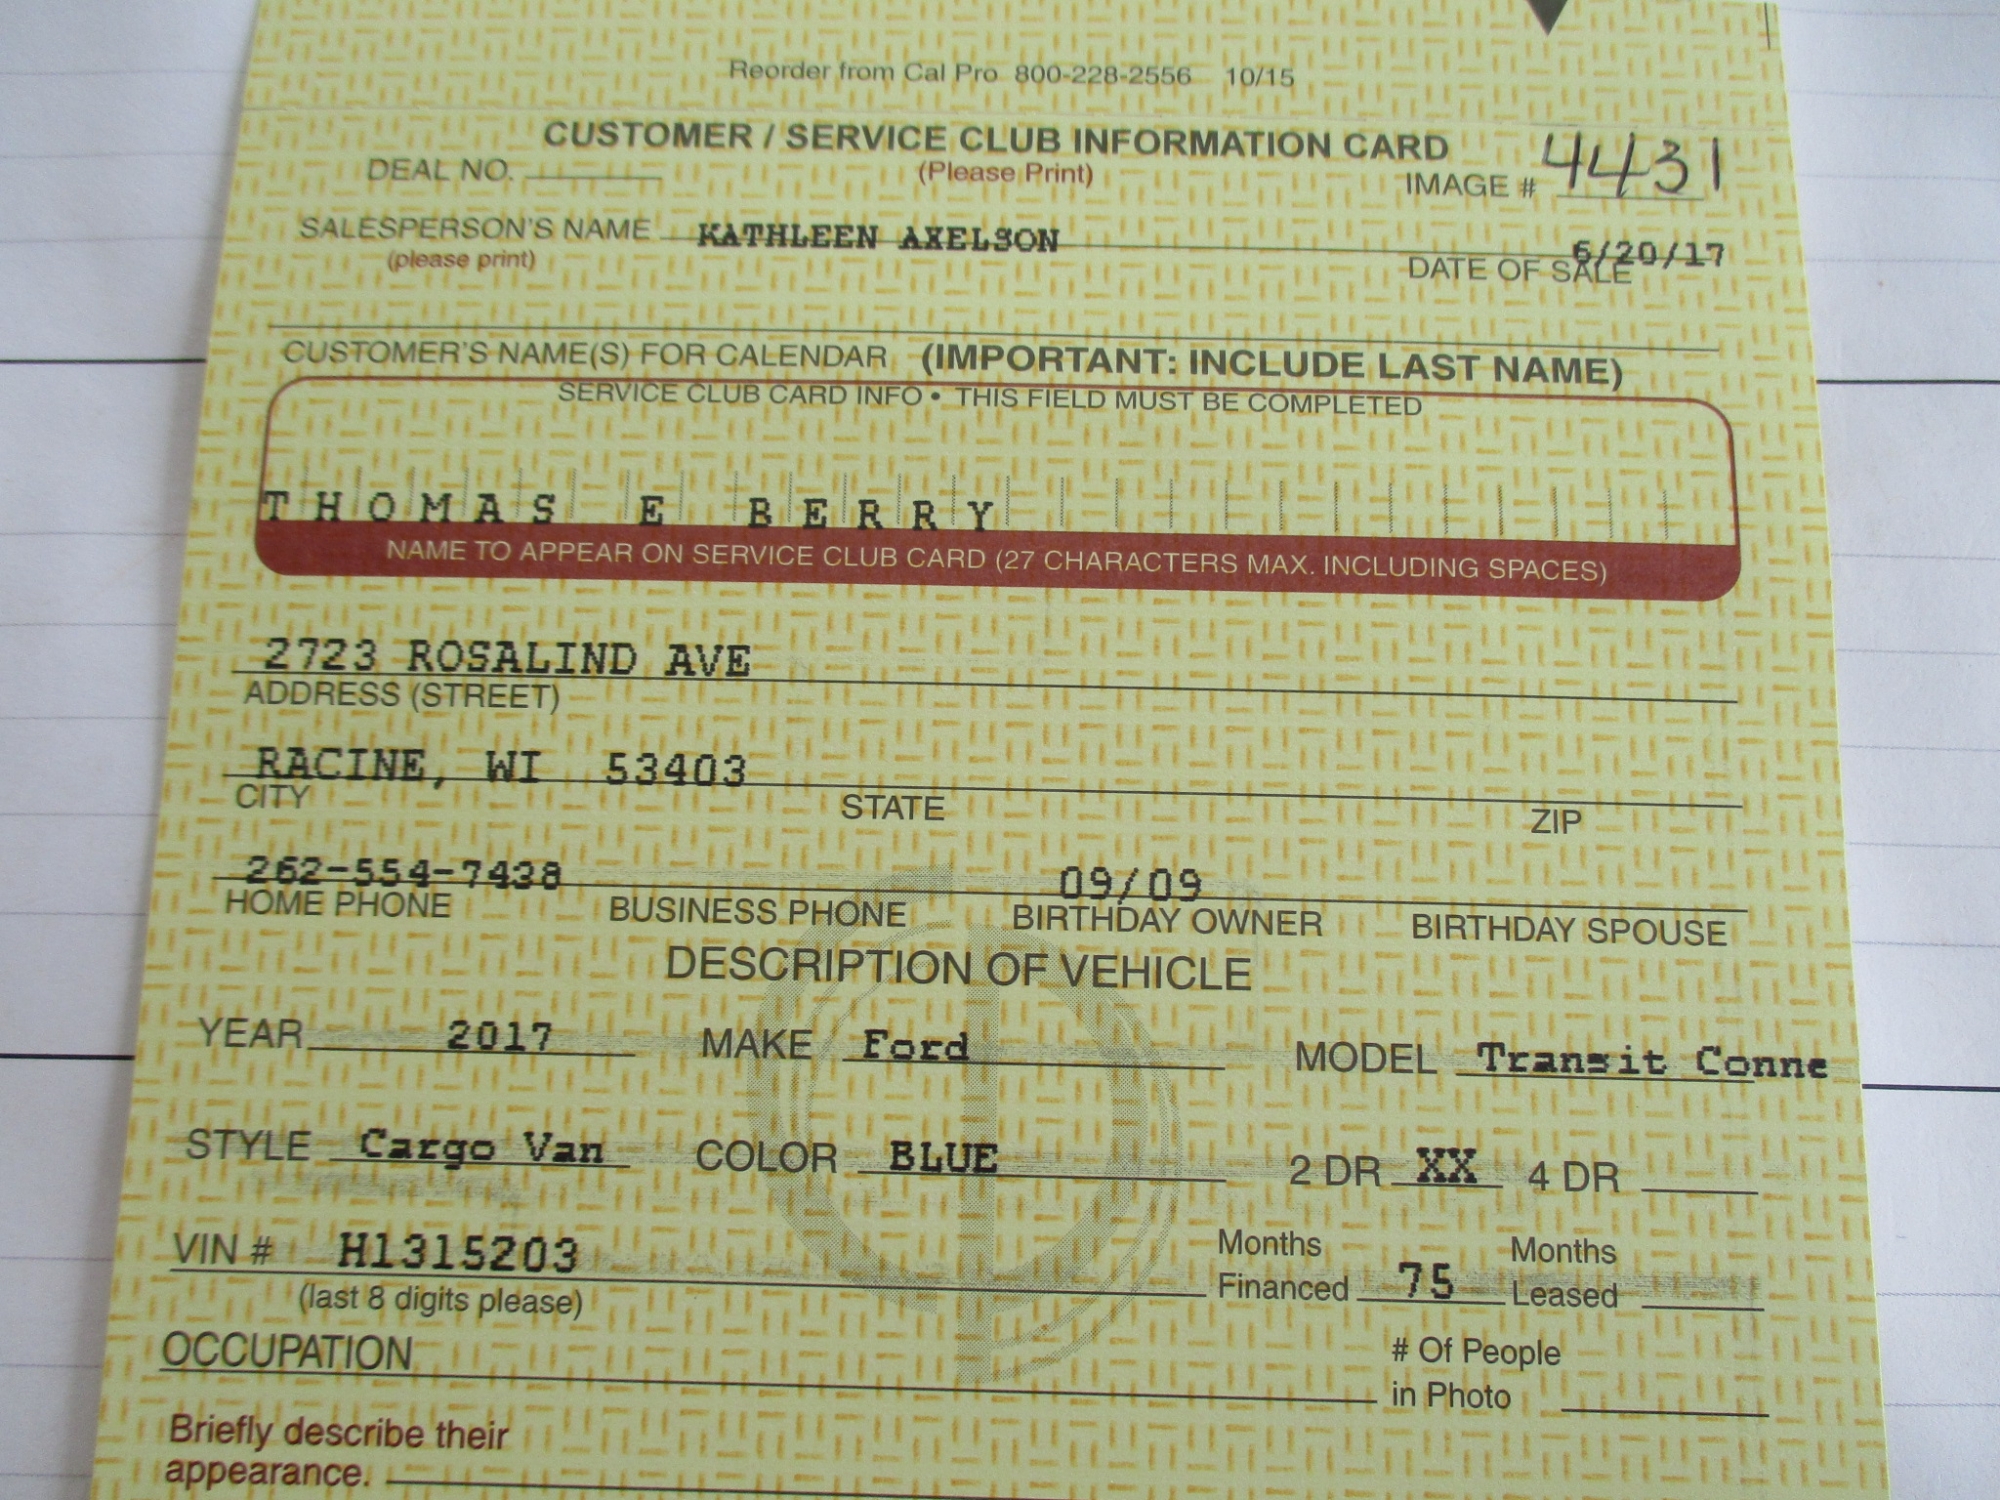 Reorder from Cal Pro 800-228-2556 10/15
CUSTOMER / SERVICE CLUB INFORMATION CARD
DEAL NO. (Please Print) IMAGE # 4431
SALESPERSON'S NAME KATHLEEN AXELSON
(please print) DATE OF SALE 6/20/17
CUSTOMER'S NAME(S) FOR CALENDAR (IMPORTANT: INCLUDE LAST NAME)
SERVICE CLUB CARD INFO • THIS FIELD MUST BE COMPLETED
THOMAS E BERRY
NAME TO APPEAR ON SERVICE CLUB CARD (27 CHARACTERS MAX. INCLUDING SPACES)
2723 ROSALIND AVE
ADDRESS (STREET)
RACINE, WI 53403
CITY STATE ZIP
262-554-7438 09/09
HOME PHONE BUSINESS PHONE BIRTHDAY OWNER BIRTHDAY SPOUSE
DESCRIPTION OF VEHICLE
YEAR 2017 MAKE Ford MODEL Transit Conne
STYLE Cargo Van COLOR BLUE 2 DR XX 4 DR
VIN # H1315203 Months Financed 75 Months Leased
(last 8 digits please)
OCCUPATION # Of People in Photo
Briefly describe their
appearance.